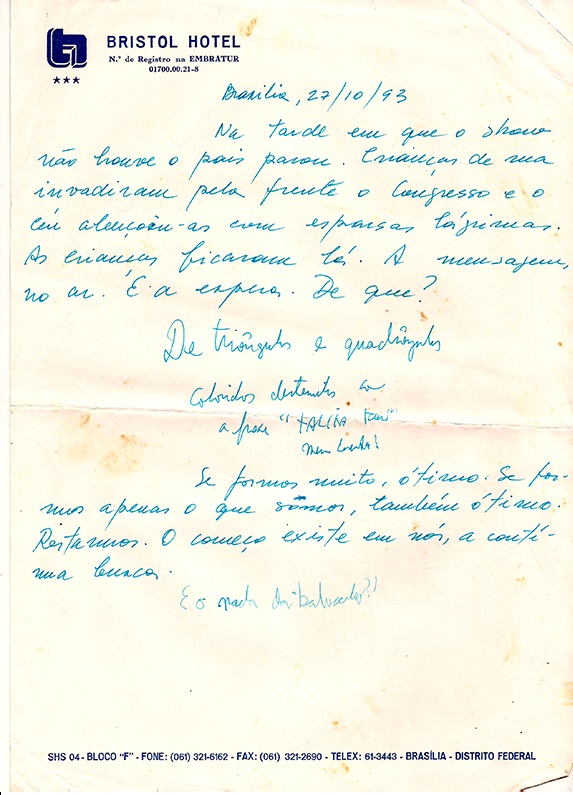 BRISTOL HOTEL
N.º de Registro na EMBRATUR
01700.00.21-8
★★★
Brasília, 27/10/93
Na tarde em que o show
não houve o país parou. Crianças de rua
invadiram pela frente o Congresso e o
céu abençoou-as com esparsas lágrimas.
As crianças ficaram lá. A mensagem,
no ar. E a espera. De que?
De triângulos e quadrângulos
Coloridos
a frase "TALITA
Se formos muito, ótimo. Se for-
mos apenas o que somos, também ótimo.
Restamos. O começo existe em nós, a contí-
nua busca.
E o nada
SHS 04 - BLOCO "F" - FONE: (061) 321-6162 - FAX: (061) 321-2690 - TELEX: 61-3443 - BRASÍLIA - DISTRITO FEDERAL